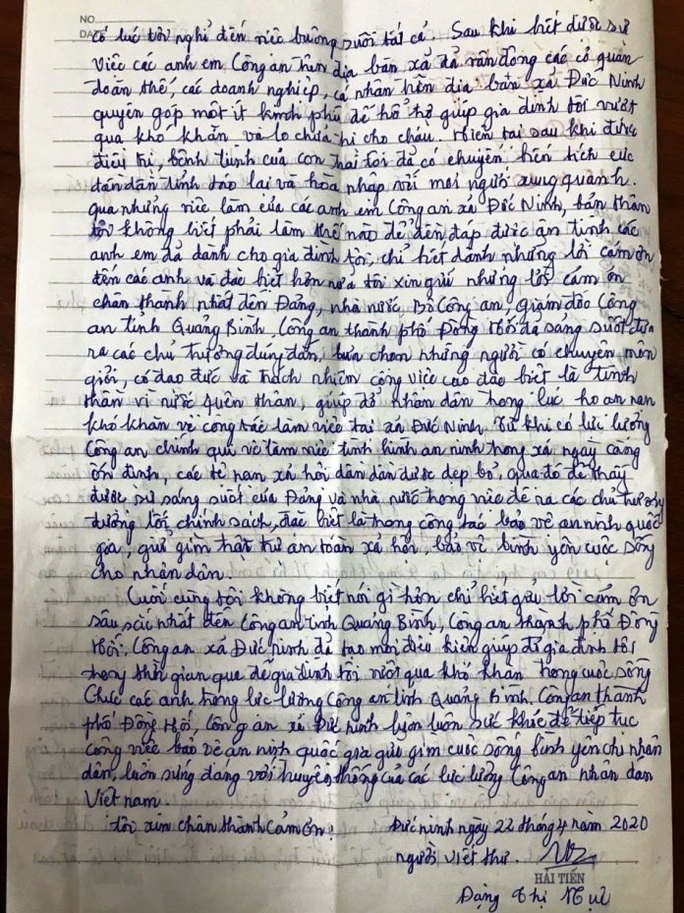 NO.
DATE
có lúc tôi nghĩ đến việc buông xuôi tất cả. Sau khi biết được sự
việc các anh em Công an trên địa bàn xã đã vân động các cơ quan
đoàn thể, các doanh nghiệp, cá nhân trên địa bàn xã Đức Ninh
quyên góp một ít kinh phí để hổ trợ giúp gia đình tôi vượt
qua khó khăn và lo chửa trị cho cháu. Hiện tại sau khi được
điều trị, bệnh tình của con trai tôi đã có chuyển biến tích cực
dần dần tỉnh táo lại và hòa nhập với mọi người xung quanh.
qua những việc làm của các anh em Công an xã Đức Ninh, bản thân
tôi không biết phải làm thế nào để đền đáp được ân tình các
anh em đã dành cho gia đình tôi, chỉ biết dành những lời cám ơn
đến các anh và đặc biệt hơn nữa tôi xin gửi những lời cám ơn
chân thành nhất đến Đảng, nhà nước, Bộ Công an, Giám đốc Công
an tỉnh Quảng Bình, Công an thành phố Đồng Hới đã sáng suốt đưa
ra các chủ trương đúng đắn, lựa chọn những người có chuyên môn
giỏi, có đạo đức và trách nhiệm công việc cao đặc biệt là tinh
thần vì nước quên thân, giúp đỡ nhân dân trong lúc hoạn nạn
khó khăn về công tác làm việc tại xã Đức Ninh. Từ khi có lực lượng
Công an chính quy về làm việc tình hình an ninh trong xã ngày càng
ổn định, các tệ nạn xã hội dần dần được dẹp bỏ, qua đó để thấy
được sự sáng suốt của Đảng và nhà nước trong việc đề ra các chủ trương
đường lối, chính sách, đặc biệt là trong công tác bảo vệ an ninh quốc
gia, giữ gìn trật tự an toàn xã hội, bảo vệ bình yên cuộc sống
cho nhân dân.
Cuối cùng tôi không biết nói gì hơn chỉ biết gửi lời cám ơn
sâu sắc nhất đến Công an tỉnh Quảng Bình, Công an thành phố Đồng
Hới, Công an xã Đức Ninh đã tạo mọi điều kiện giúp đỡ gia đình tôi
trong thời gian qua để gia đình tôi vượt qua khó khăn trong cuộc sống
Chúc các anh trong lực lượng Công an tỉnh Quảng Bình. Công an thành
phố Đồng Hới, Công an xã Đức Ninh luôn luôn sức khỏe để tiếp tục
công việc bảo vệ an ninh quốc gia giữ gìn cuộc sống bình yên cho nhân
dân, luôn xứng đáng với truyền thống của các lực lượng Công an nhân dân
Việt nam.
Tôi xin chân thành cảm ơn! Đức ninh ngày 22 tháng 4 năm 2020
người viết thư.
HẢI TIẾN
Đặng Thị Mụi